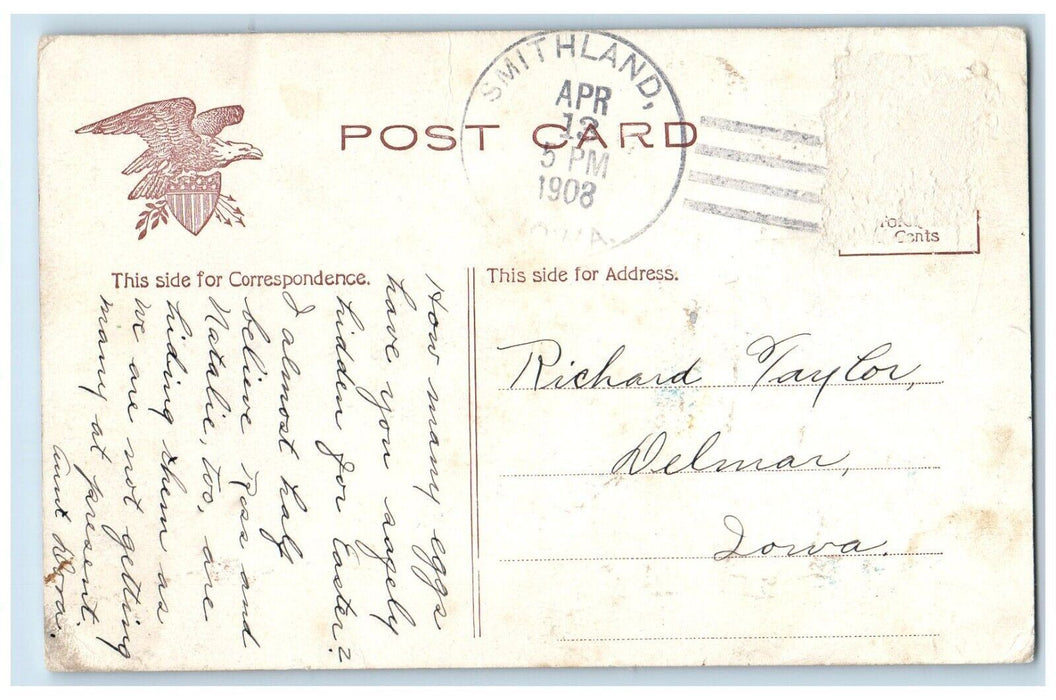 POST CARD
SMITHLAND,
APR
13
5 PM
1908
IOWA.
Cents
This side for Correspondence.
This side for Address.
How many eggs
have you safely
hidden for Easter?
I almost half
believe Ross and
Natalie, too, are
hiding them as
we are not getting
many at present.
Aunt Dora.
Richard Taylor,
Delmar,
Iowa.